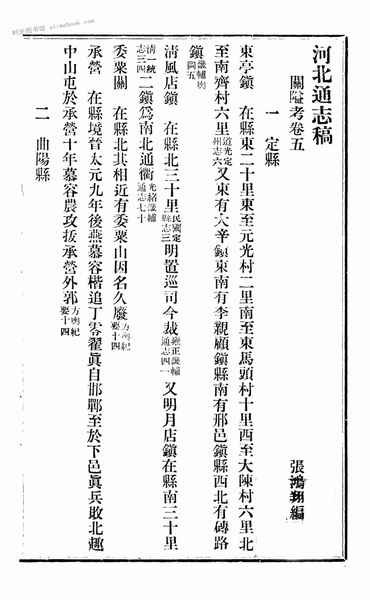 河北通志稿
關隘考卷五 張鴻翔編
一 定縣
東亭鎮 在縣東二十里東至元光村二里南至東馬頭村十里西至大陳村六里北
至南齊村六里道光定州志六又東有大辛鎮東南有李親顧鎮縣南有邢邑鎮縣西北有磚路
鎮畿輔輿圖五
清風店鎮 在縣北三十里民國定縣志三明置巡司今裁雍正畿輔通志四一又明月店鎮在縣南三十里
清一統志三四二鎮爲南北通衢光緒畿輔通志七十
委粟關 在縣北其相近有委粟山因名久廢方輿紀要十四
承營 在縣境晉太元九年後燕慕容楷追丁零翟眞自邯鄲至於下邑眞兵敗北趣
中山屯於承營十年慕容農攻拔承營外郭方輿紀要十四
二 曲陽縣